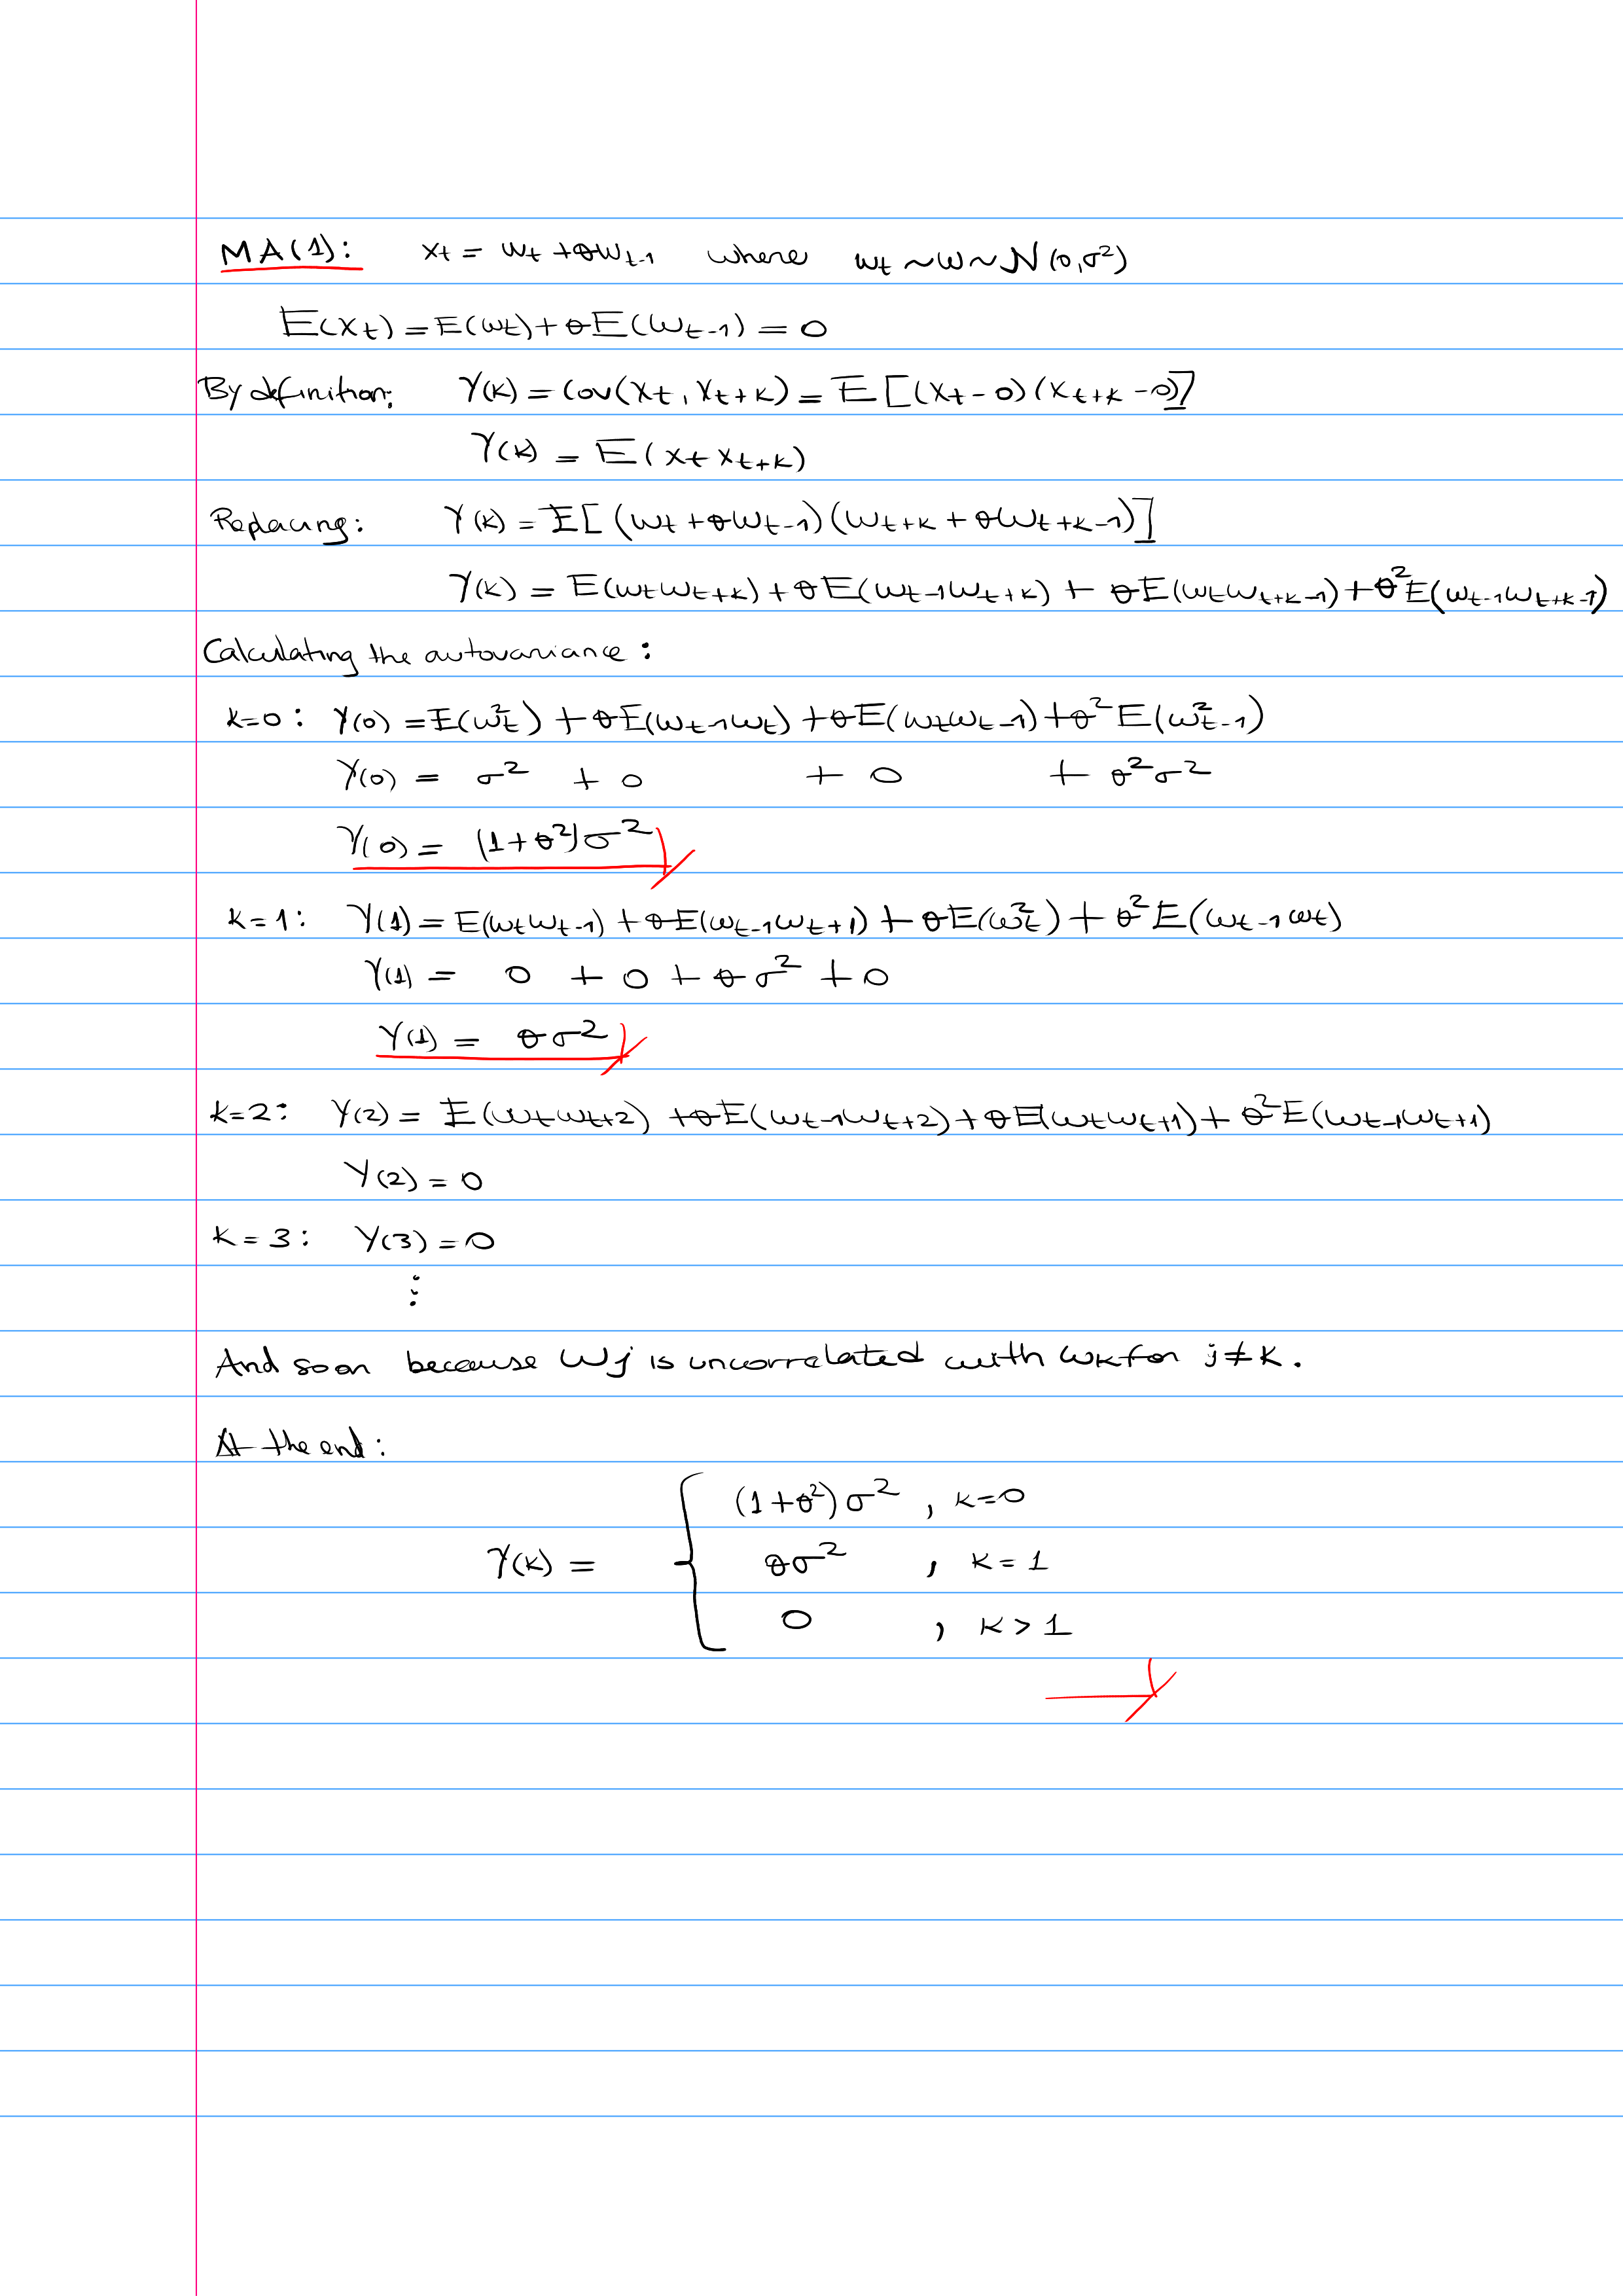 MA(1): x_t = w_t + θw_{t-1} where w_t ~ w ~ N(0,σ²)
E(x_t) = E(w_t) + θE(w_{t-1}) = 0
By definition: γ(k) = cov(x_t, x_{t+k}) = E[(x_t - 0)(x_{t+k} - 0)]
γ(k) = E(x_t x_{t+k})
Replacing: γ(k) = E[(w_t + θw_{t-1})(w_{t+k} + θw_{t+k-1})]
γ(k) = E(w_t w_{t+k}) + θE(w_{t-1} w_{t+k}) + θE(w_t w_{t+k-1}) + θ²E(w_{t-1} w_{t+k-1})
Calculating the autovariance:
k=0: γ(0) = E(w_t²) + θE(w_{t-1} w_t) + θE(w_t w_{t-1}) + θ²E(w²_{t-1})
γ(0) = σ² + 0 + 0 + θ²σ²
γ(0) = (1+θ²)σ²
k=1: γ(1) = E(w_t w_{t-1}) + θE(w_{t-1} w_{t+1}) + θE(w_t²) + θ²E(w_{t-1} w_t)
γ(1) = 0 + 0 + θσ² + 0
γ(1) = θσ²
k=2: γ(2) = E(w_t w_{t+2}) + θE(w_{t-1} w_{t+2}) + θE(w_t w_{t+1}) + θ²E(w_{t-1} w_{t+1})
γ(2) = 0
k=3: γ(3) = 0
⋮
And so on because w_j is uncorrelated with w_k for j ≠ k.
At the end:
(1+θ²)σ² , k=0
γ(k) = { θσ² , k=1
0 , k>1